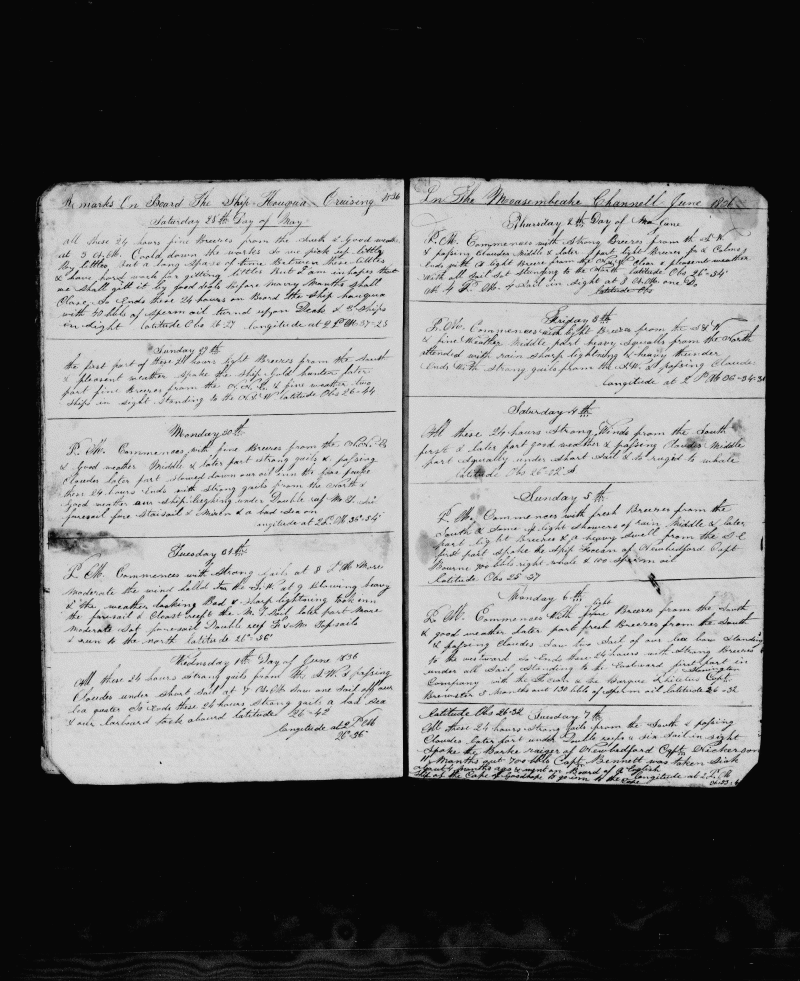 Remarks On Board The Ship Houqua Cruising 1836
Saturday 28th Day of May
all these 24 hours fine Breezes from the South & Good weather
at 3 A.M. Coold down the works so we pick up little
by littles but a long Space of time Between these littles
& have hard work for gitting littles But I am in hopes that
we Shall gitt it by good deals before many Months Shall
Close So Ends these 24 hours on Board the Ship houqua
with bbls of Sperm oil turnd upon Deck & 3 Ships
in Sight latitude Obs 26-27 longitude at 2 P.M 37-23
Sunday 29th
the first part of these 24 hours light Breezes from the South
& pleasent weather Spoke the Ship Gold hunter later
part fine Breezes from the & fine weather two
Ships in Sight Standing to the latitude Obs 26-44
Monday 30th
P. M. Commences with fine Breezes from the
& Good weather Middle & later part strong gails & passing
Cloudes later part stowed down our oil in the fore
these 24 hours Ends with strong gails from the North &
Good weather our ship laying under Double reef M. T. Sail
foresail fore Staisail & Mizen & a bad sea on
longitude at 2 P. M 35-34
Tuesday 31th
P. M. Commences with Strong Gails at 8 P. M. More
moderate the wind haled to the S. W. at 9 blowing heavy
& the weather looking Bad & sharp lightning took inn
the foresail & Clost reeft the M. T Sail later part More
Moderate Set foresail Double reef F & M Topsails
& run to the north latitude 26-36
Wednsday 1th Day of June 1836
All these 24 hours strong gails from the S. W. & passing
Cloudes under Short Sail at 7 A. M. Saw one Sail off our
lea quater So Ends these 24 hours Strong gails a bad Sea
& our larboard tack aboard latitude 26-43
longitude at 2 P. M
36-36
In The Mosembeake Channell June 1836
Thursday 2th Day of June
P. M. Commences with Strong Breezes from the S. W
& passing Cloudes Middle & later part light Breezes & Calms
Ends with a light Breeze from the Clear & pleasent weather
With all Sail Set Steering to the North latitude Obs 26-34
At 4 P. M. 4 Sail in Sight at 8 A. M. one Do
latitude Obs
Friday 3th
P. M. Commences with light Breezes from the S & W
& fine Weather Middle part heavy Squalls from the North
Attended with rain Sharp lightning & heavy thunder
Ends With Strong gails from the S. W. & passing Cloudes
Longitude at 2 P. M 36-34-30
Saturday 4th
All these 24 hours Strong Winds from the South
first & later part good weather & passing Cloudes Middle
part Squally under Short Sail & to ruged to whale
latitude Obs 26-22 S
Sunday 5th
P. M. Commences with fresh Breezes from the
South & Some of light showers of rain Middle & later
part light Breezes & a heavy Swell from the S-E
first part Spoke the Ship Focean of Newbedford Capt
Bourne 700 bbls right whale & 100 Sperm oil
latitude Obs 25-27
Monday 6th
P. M. Commences With fine Breezes from the South
& good weather later part fresh Breezes from the South
& passing Cloudes Saw two Sail of our lee bow Standing
to the westward So Ends these 24 hours with Strong Breezes
under all Sail Standing to the Eastward first part in
Company with the Focean & the Barque Stonington Capt
Brewster 3 Months out 130 bbls of Sperm oil latitude 26-32
latitude Obs 26-32 Tuesday 7th
All these 24 hours Strong gails from the South & passing
Cloudes later part under Double reefs & six Sail in Sight
Spoke the Barke raiger of Newbedford Capt
11 Months out 700 bbls Capt Bennett was taken Sick
about 4 months ago & went on Board of a English
Ship of the Cape of Goodhope to go inn to the Cape longitude at 2 P. M